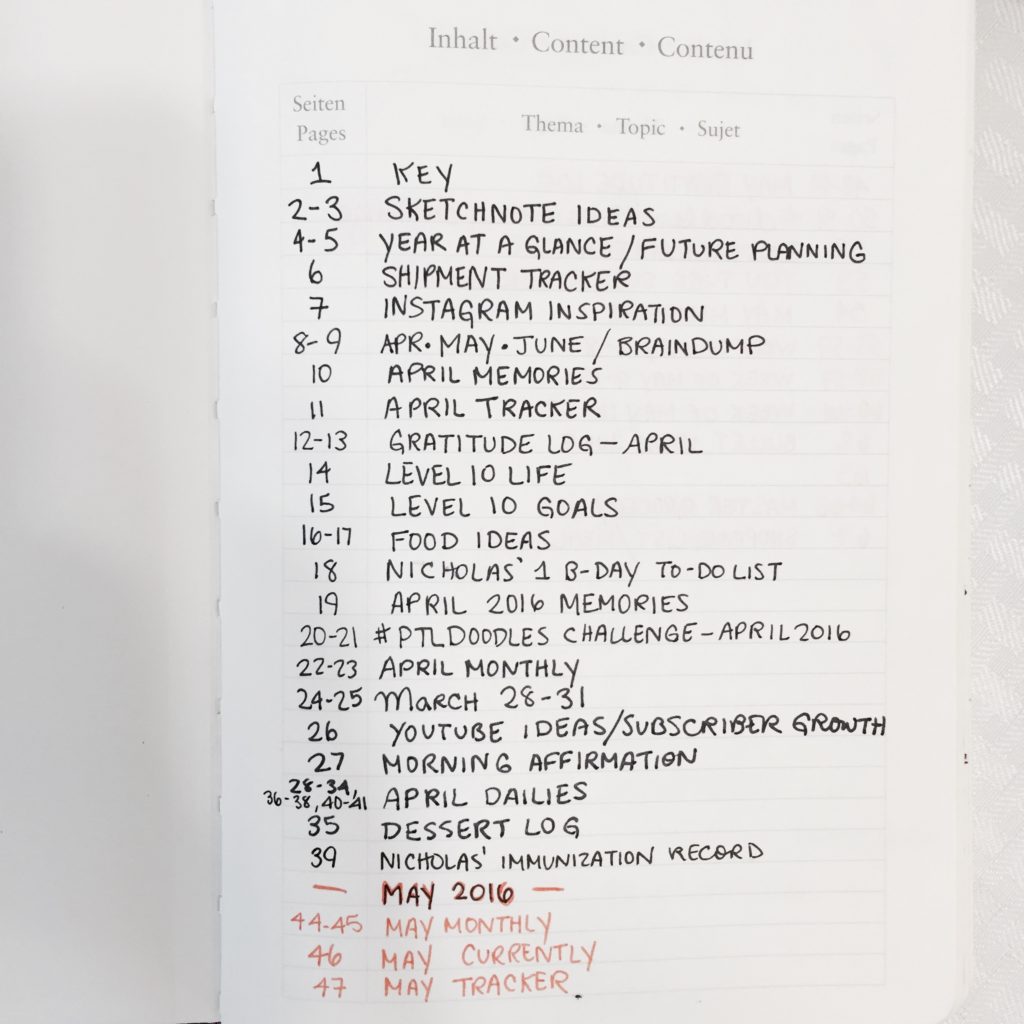 Inhalt • Content • Contenu
Seiten
Pages
Thema • Topic • Sujet
1 KEY
2-3 SKETCHNOTE IDEAS
4-5 YEAR AT A GLANCE / FUTURE PLANNING
6 SHIPMENT TRACKER
7 INSTAGRAM INSPIRATION
8-9 APR. MAY. JUNE / BRAINDUMP
10 APRIL MEMORIES
11 APRIL TRACKER
12-13 GRATITUDE LOG - APRIL
14 LEVEL 10 LIFE
15 LEVEL 10 GOALS
16-17 FOOD IDEAS
18 NICHOLAS' 1 B-DAY TO-DO LIST
19 APRIL 2016 MEMORIES
20-21 #PTLDOODLES CHALLENGE - APRIL 2016
22-23 APRIL MONTHLY
24-25 MARCH 28-31
26 YOUTUBE IDEAS/SUBSCRIBER GROWTH
27 MORNING AFFIRMATION
28-34,
36-38, 40-41 APRIL DAILIES
35 DESSERT LOG
39 NICHOLAS' IMMUNIZATION RECORD
— MAY 2016 —
44-45 MAY MONTHLY
46 MAY CURRENTLY
47 MAY TRACKER